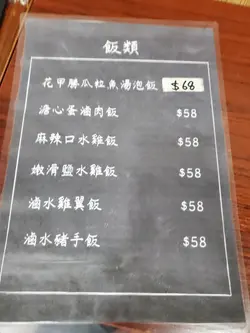 飯類
花甲勝瓜粒魚湯泡飯 $68
溏心蛋滷肉飯 $58
麻辣口水雞飯 $58
嫩滑鹽水雞飯 $58
滷水雞翼飯 $58
滷水豬手飯 $58